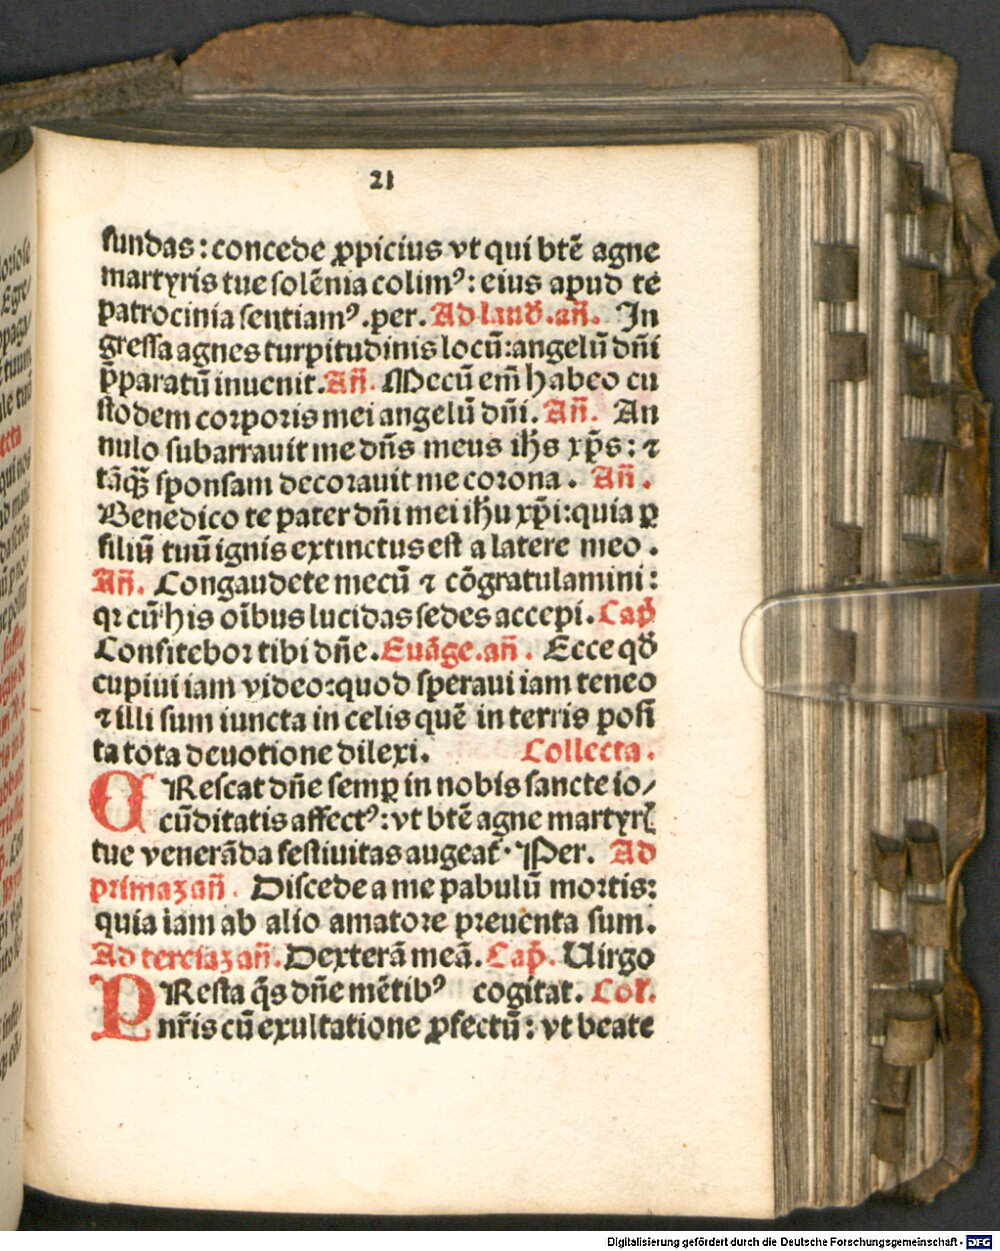 21
fundas: concede ꝓpicius vt qui btē agne
martyris tue solēnia colimꝰ: eius apud te
patrocinia sentiamꝰ. per. Ad laud̄. an̄. In
gressa agnes turpitudinis locū: angelū dn̄i
p̄paratū inuenit. An̄. Mecū em̄ habeo cu
stodem corporis mei angelū dn̄i. An̄. An
nulo subarrauit me dn̄s meus ihs̄ xp̄s: ⁊
tāq̄ꝫ sponsam decorauit me corona. An̄.
Benedico te pater dn̄i mei ihū xp̄i: quia ꝑ
filiū tuū ignis extinctus est a latere meo.
An̄. Congaudete mecū ⁊ cōgratulamini:
qꝛ cū his oībus lucidas sedes accepi. Cap̄
Confitebor tibi dn̄e. Euāge. an̄. Ecce qd̄
cupiui iam video: quod speraui iam teneo
⁊ illi sum iuncta in celis quē in terris posi
ta tota deuotione dilexi. Collecta.
CRescat dn̄e semꝑ in nobis sancte io/
cūditatis affectꝰ: vt btē agne martyrꝭ
tue venerāda festiuitas augeat᷑. Per. Ad
primaꝫ an̄. Discede a me pabulū mortis:
quia iam ab alio amatore preuenta sum.
Ad terciaꝫ an̄. Dexterā meā. Cap̄. Uirgo
PResta q̄s dn̄e mētibꝰ cogitat. Col.
nr̄is cū exultatione ꝓfectū: vt beate
Digitalisierung gefördert durch die Deutsche Forschungsgemeinschaft - DFG